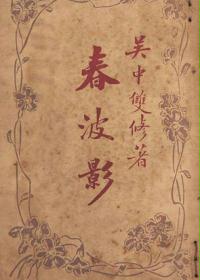 吳中雙修著
春波影